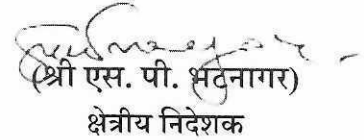 (श्री एस. पी. भटनागर)
क्षेत्रीय निदेशक